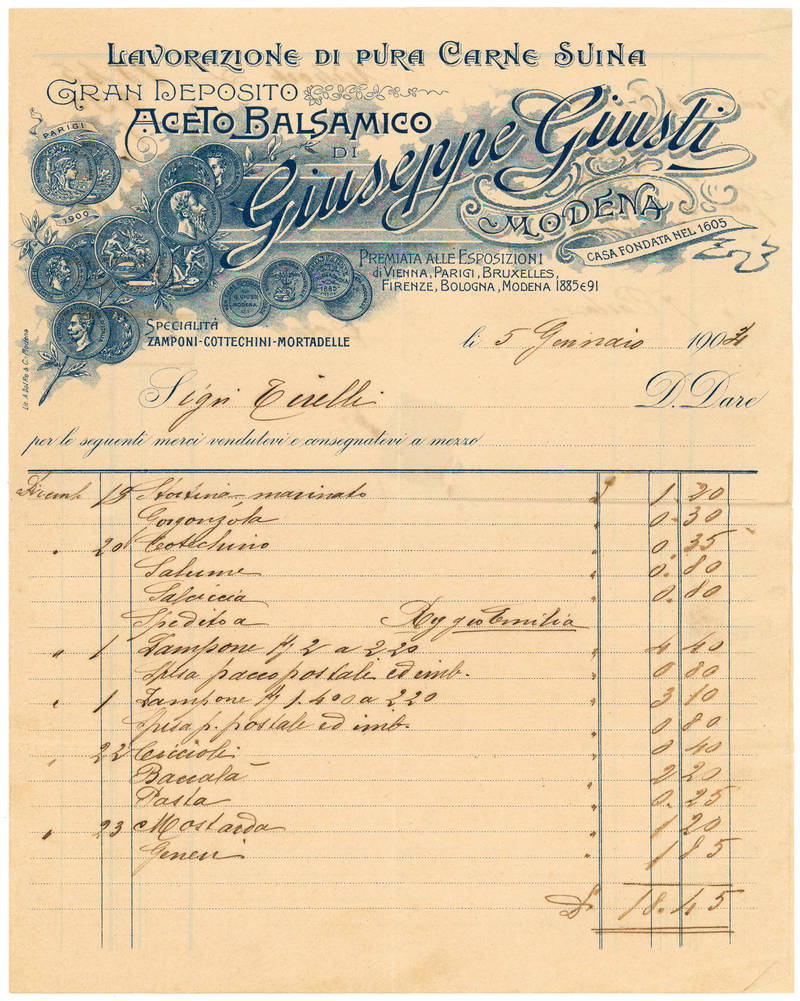 LAVORAZIONE DI PURA CARNE SUINA
GRAN DEPOSITO
ACETO BALSAMICO
DI
Giuseppe Giusti
MODENA
CASA FONDATA NEL 1605
PARIGI
1900
PREMIATA ALLE ESPOSIZIONI
di VIENNA, PARIGI, BRUXELLES,
FIRENZE, BOLOGNA, MODENA 1885 E 91
SPECIALITÀ
ZAMPONI-COTTECHINI-MORTADELLE
li 5 Gennaio 1904
Sigri Tirelli
D. Dare
per le seguenti merci vendutevi e consegnatevi a mezzo
19 marinato £ 1.20
Gorgonzola " 0.30
" 20 Cotechino " 0.35
Salume " 0.80
Salciccia " 0.80
Spedito a Reggio Emilia
" 1 Zampone Kg 2 a 2.20 " 4.40
Spesa pacco postali ed imb. " 0.80
" 1 Zampone Kg 1.400 a 2.20 " 3.10
Spesa p. postale ed imb. " 0.80
" 22 Ciccioli " 0.40
Baccalà " 2.20
Pasta " 0.25
" 23 Mostarda " 1.20
Generi " 1.85
£ 18.45